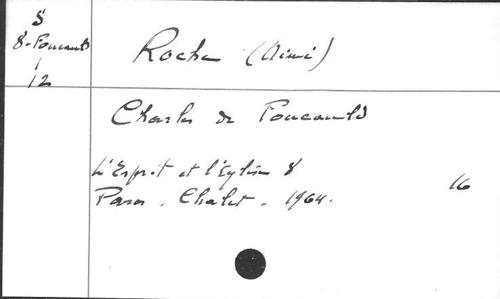 S
8-Foucauld
1
12
Roche (Aimé)
Charles de Foucauld
L'Esprit et l'Eglise 8
Paris. Chalet. 1964.
16